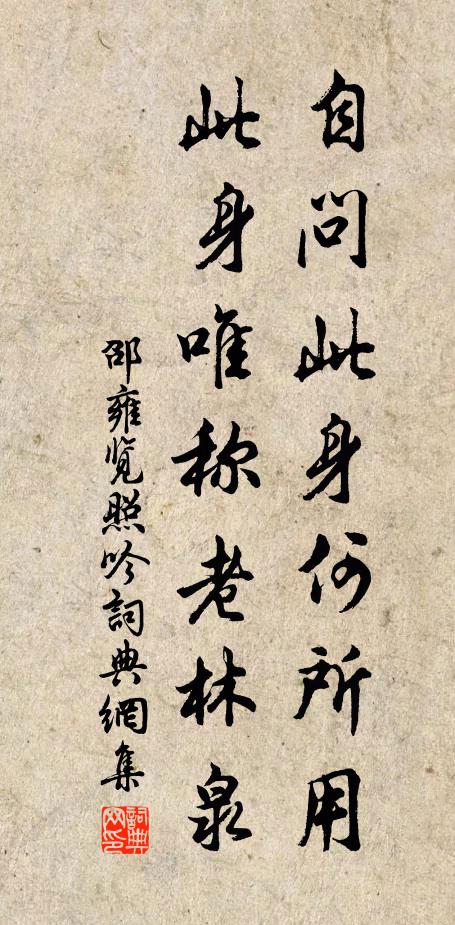 自问此身何所用
此身唯称老林泉
邵雍览照吟詞典網集
詞典网印